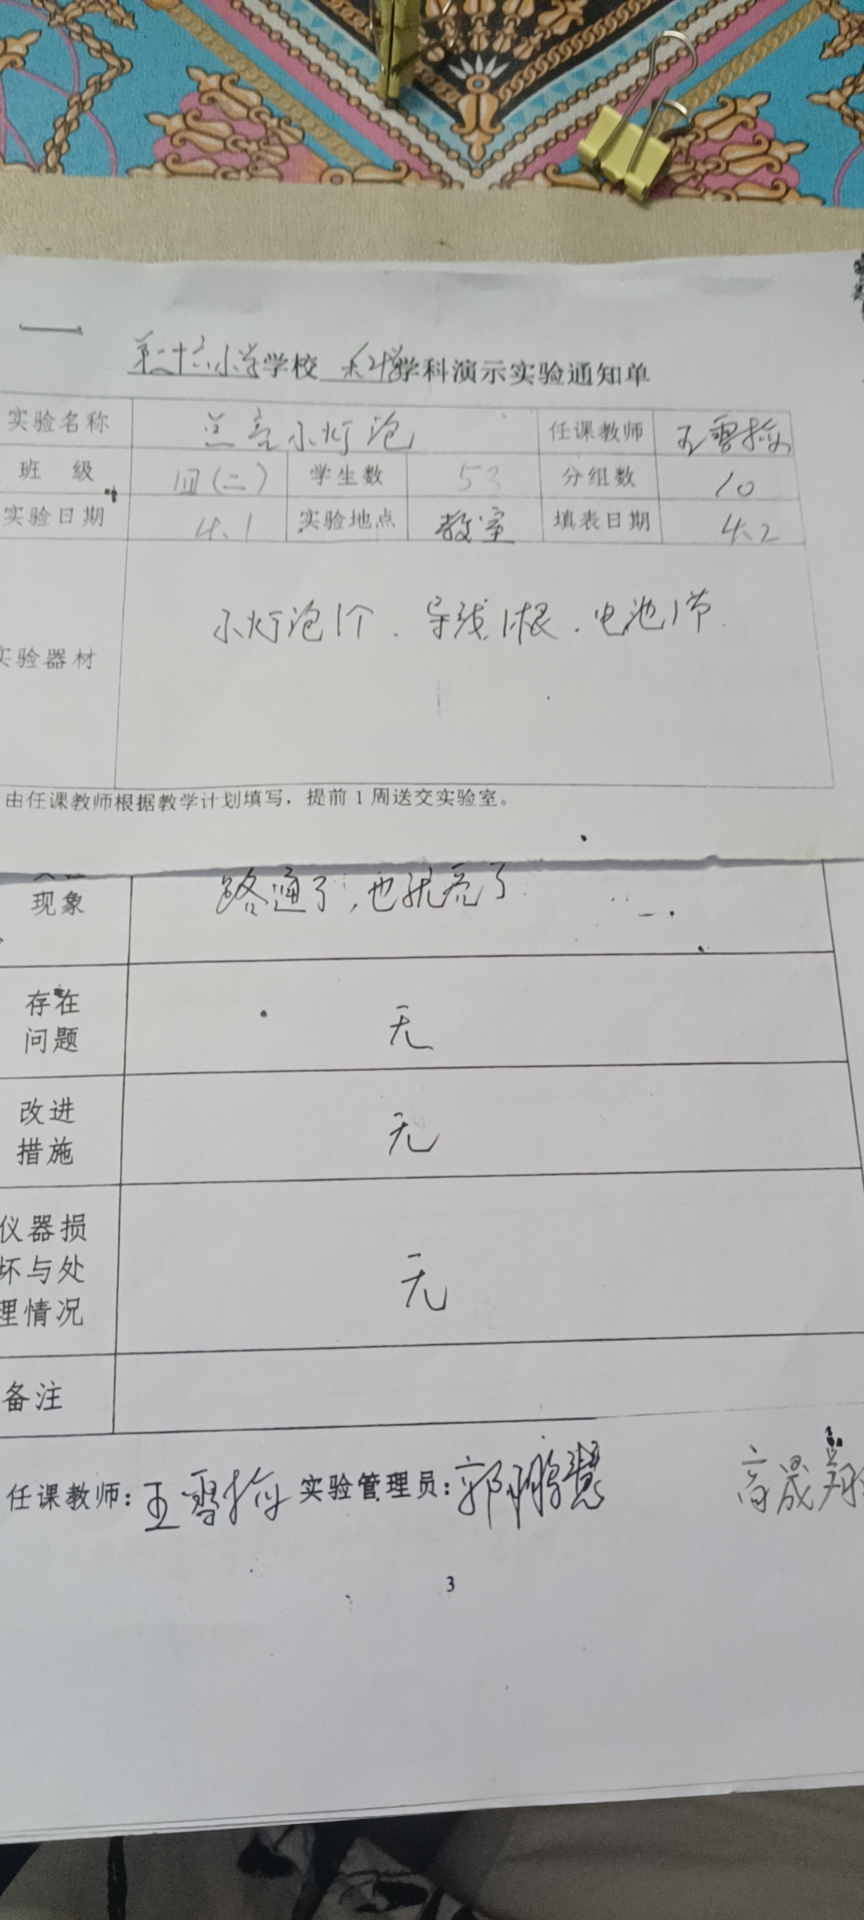 第二十六小学学校 科学学科演示实验通知单
实验名称 点亮小灯泡 任课教师 王雪梅
班 级 四(二) 学生数 53 分组数 10
实验日期 4.1 实验地点 教室 填表日期 4.2
实验器材 小灯泡1个、导线1根、电池1节
由任课教师根据教学计划填写，提前1周送交实验室。
现象 路通了，也就亮了
存在
问题 无
改进
措施 无
仪器损
坏与处
理情况 无
备注
任课教师：王雪梅 实验管理员：郭鹏慧 高晟翔
3